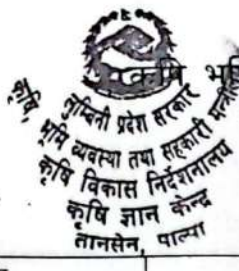 कृषि भू
लुम्बिनी प्रदेश सरकार
कृषि, भूमि व्यवस्था तथा सहकारी मन्त्रालय
कृषि विकास निर्देशनालय
कृषि ज्ञान केन्द्र
तानसेन, पाल्पा